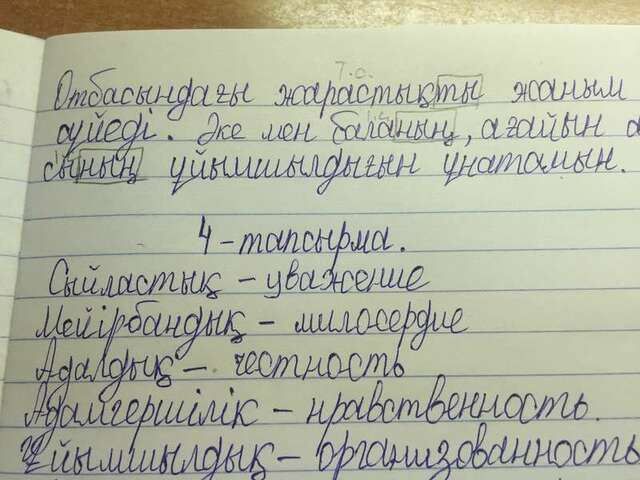 7.о.
Отбасындағы жарастықты жаным
сүйеді. Әке мен баланың, ағайын а
сының ұйымшылдығын ұнатамын.
4-тапсырма.
Сыйластық - уважение
Мейірбандық - милосердие
Адалдық - честность
Адамгершілік - нравственность.
Ұйымшылдық - организованность